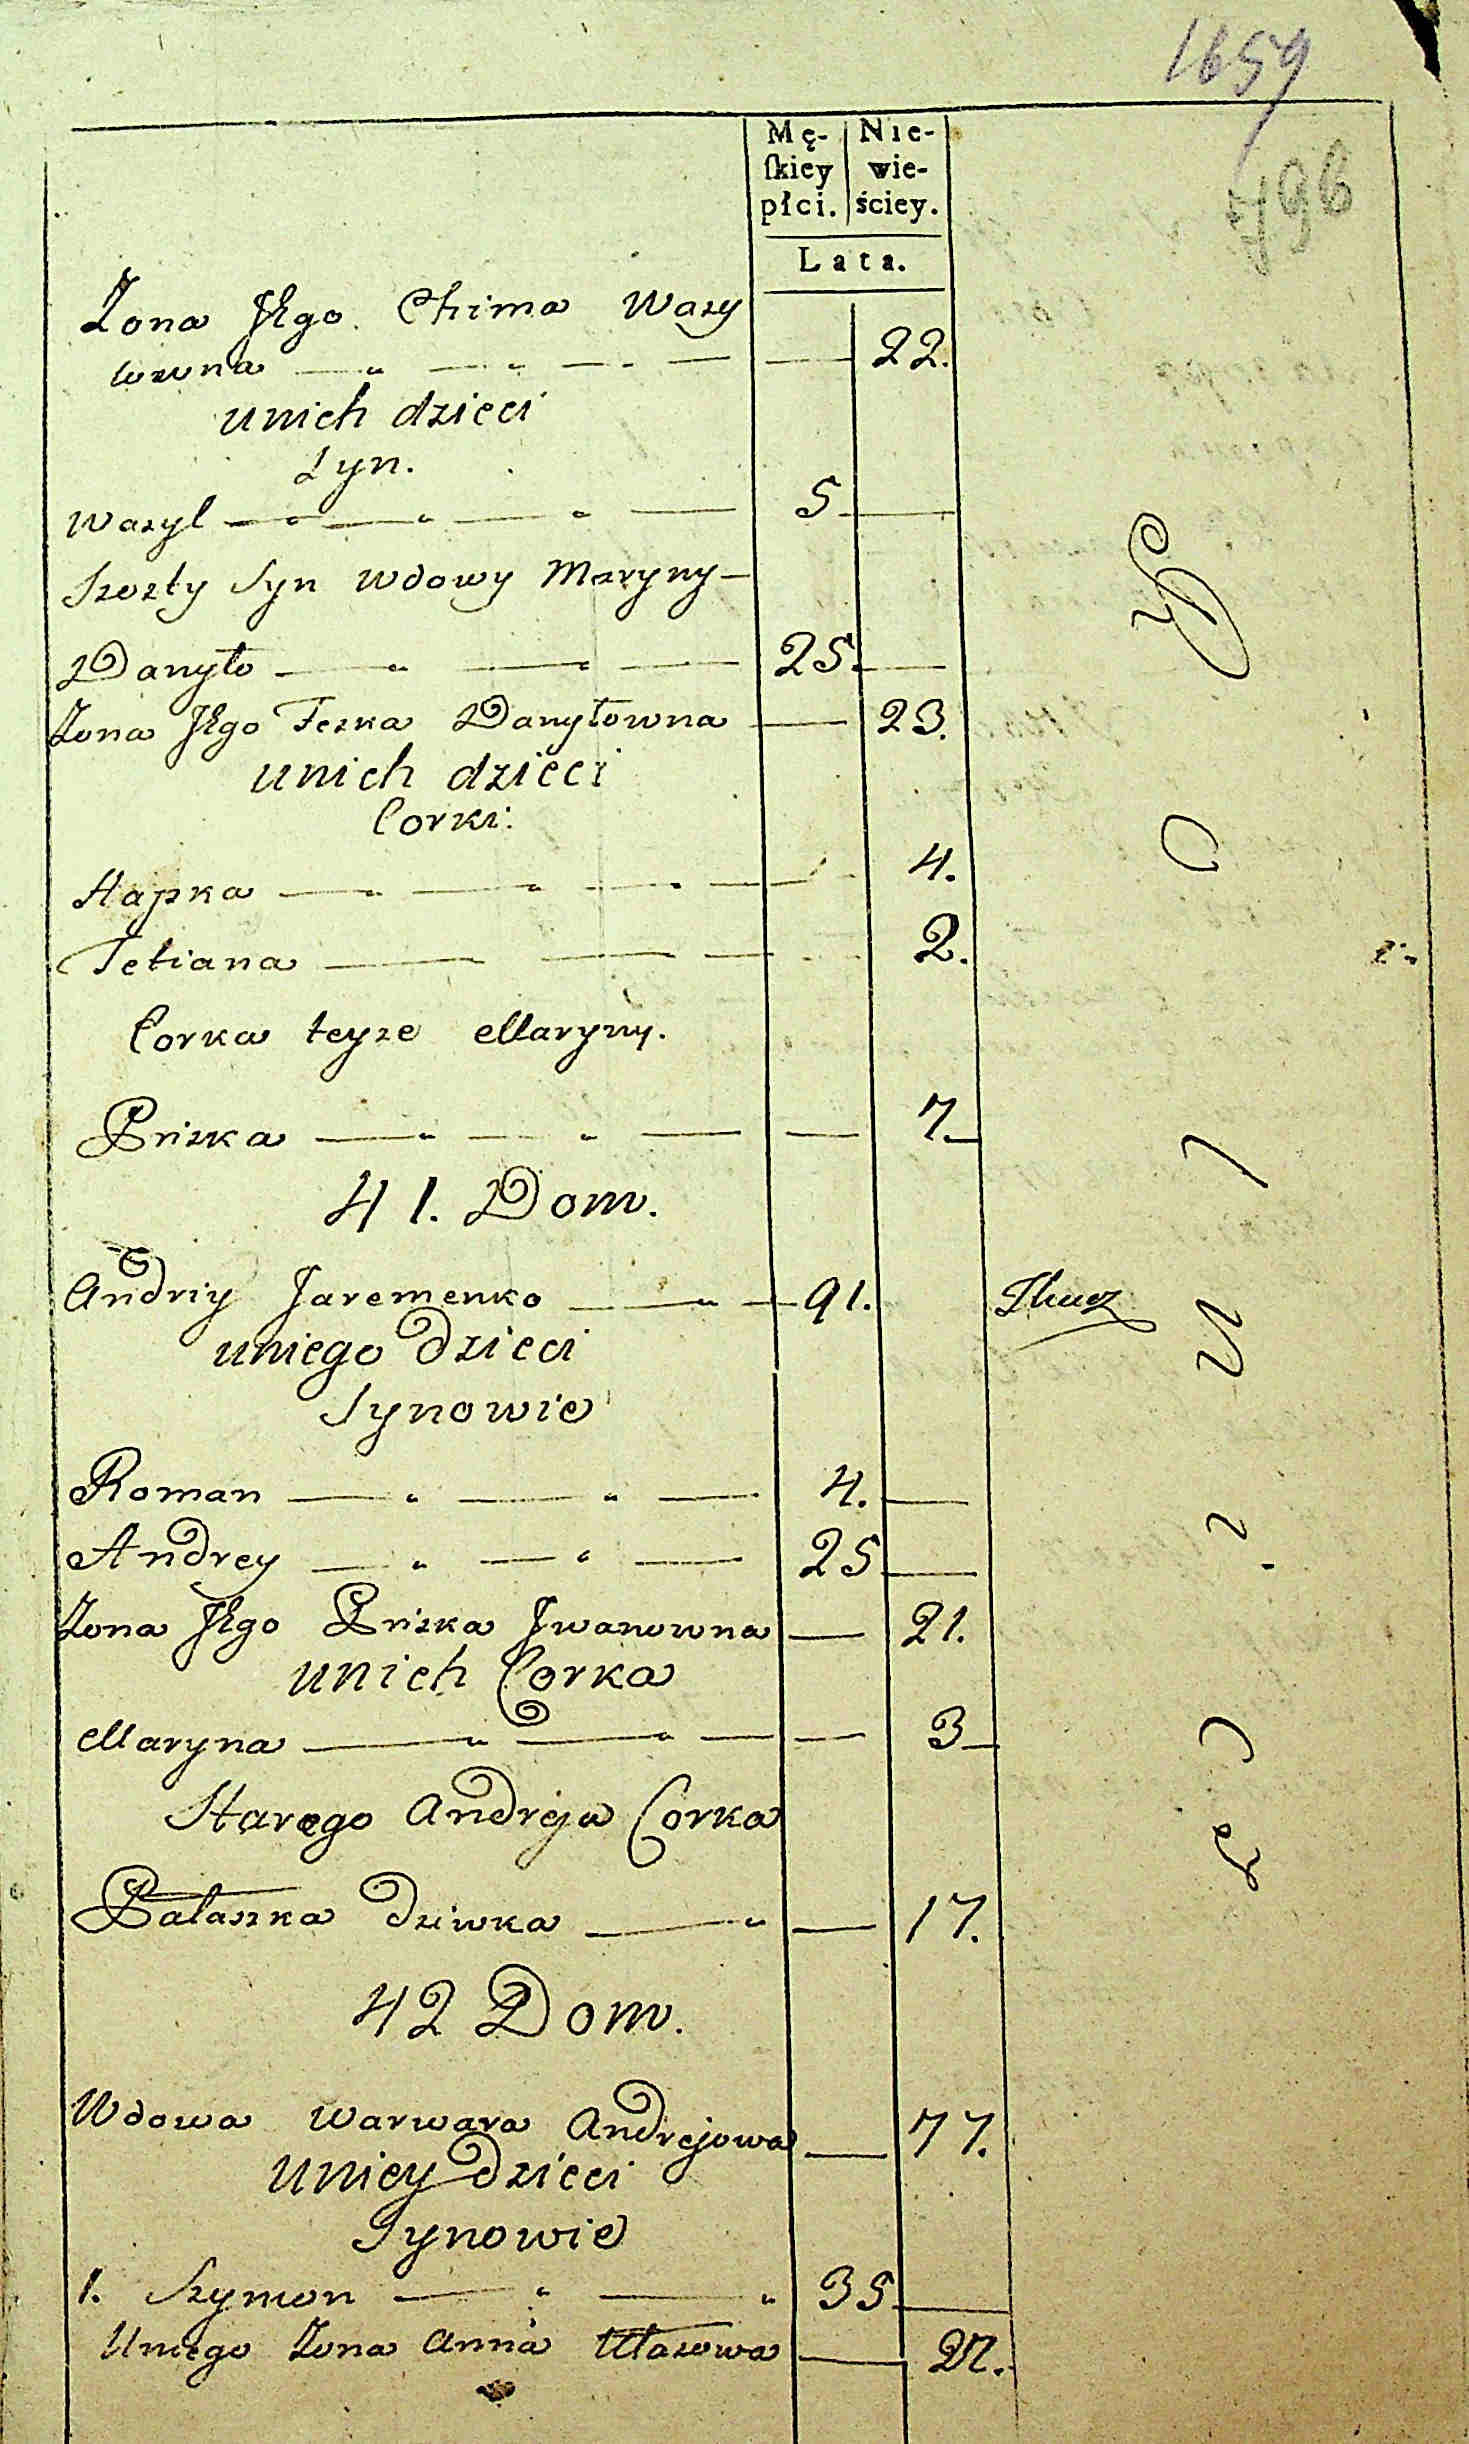 1659
796
Mę-
ſkiey
płci.
Nie-
wie-
ściey.
Lata.
Zona Jego Chima Wasy
lowna 22.
unich dzieci
Syn.
Wasyl 5
Szosty Syn Wdowy Maryny
Danyło 25.
Zona Jego Feska Danyłowna 23.
unich dzieci
Corki:
Hapka 4.
Tetiana 2.
Corka teyze Maryny.
Priska 7.
41. Dom.
Andriy Jaremenko 91.
uniego dzieci
Synowie
Roman 4.
Andrey 25
Zona Jego Priska Jwanowna 21.
unich Corka
Maryna 3
Starego Andreja Corka
Pałaszka dziwka 17.
42 Dom.
Wdowa Warwara Andrejowa 77.
Uniey dzieci
Synowie
1. Szymon 35
Uniego Zona Anna Własowa 27.